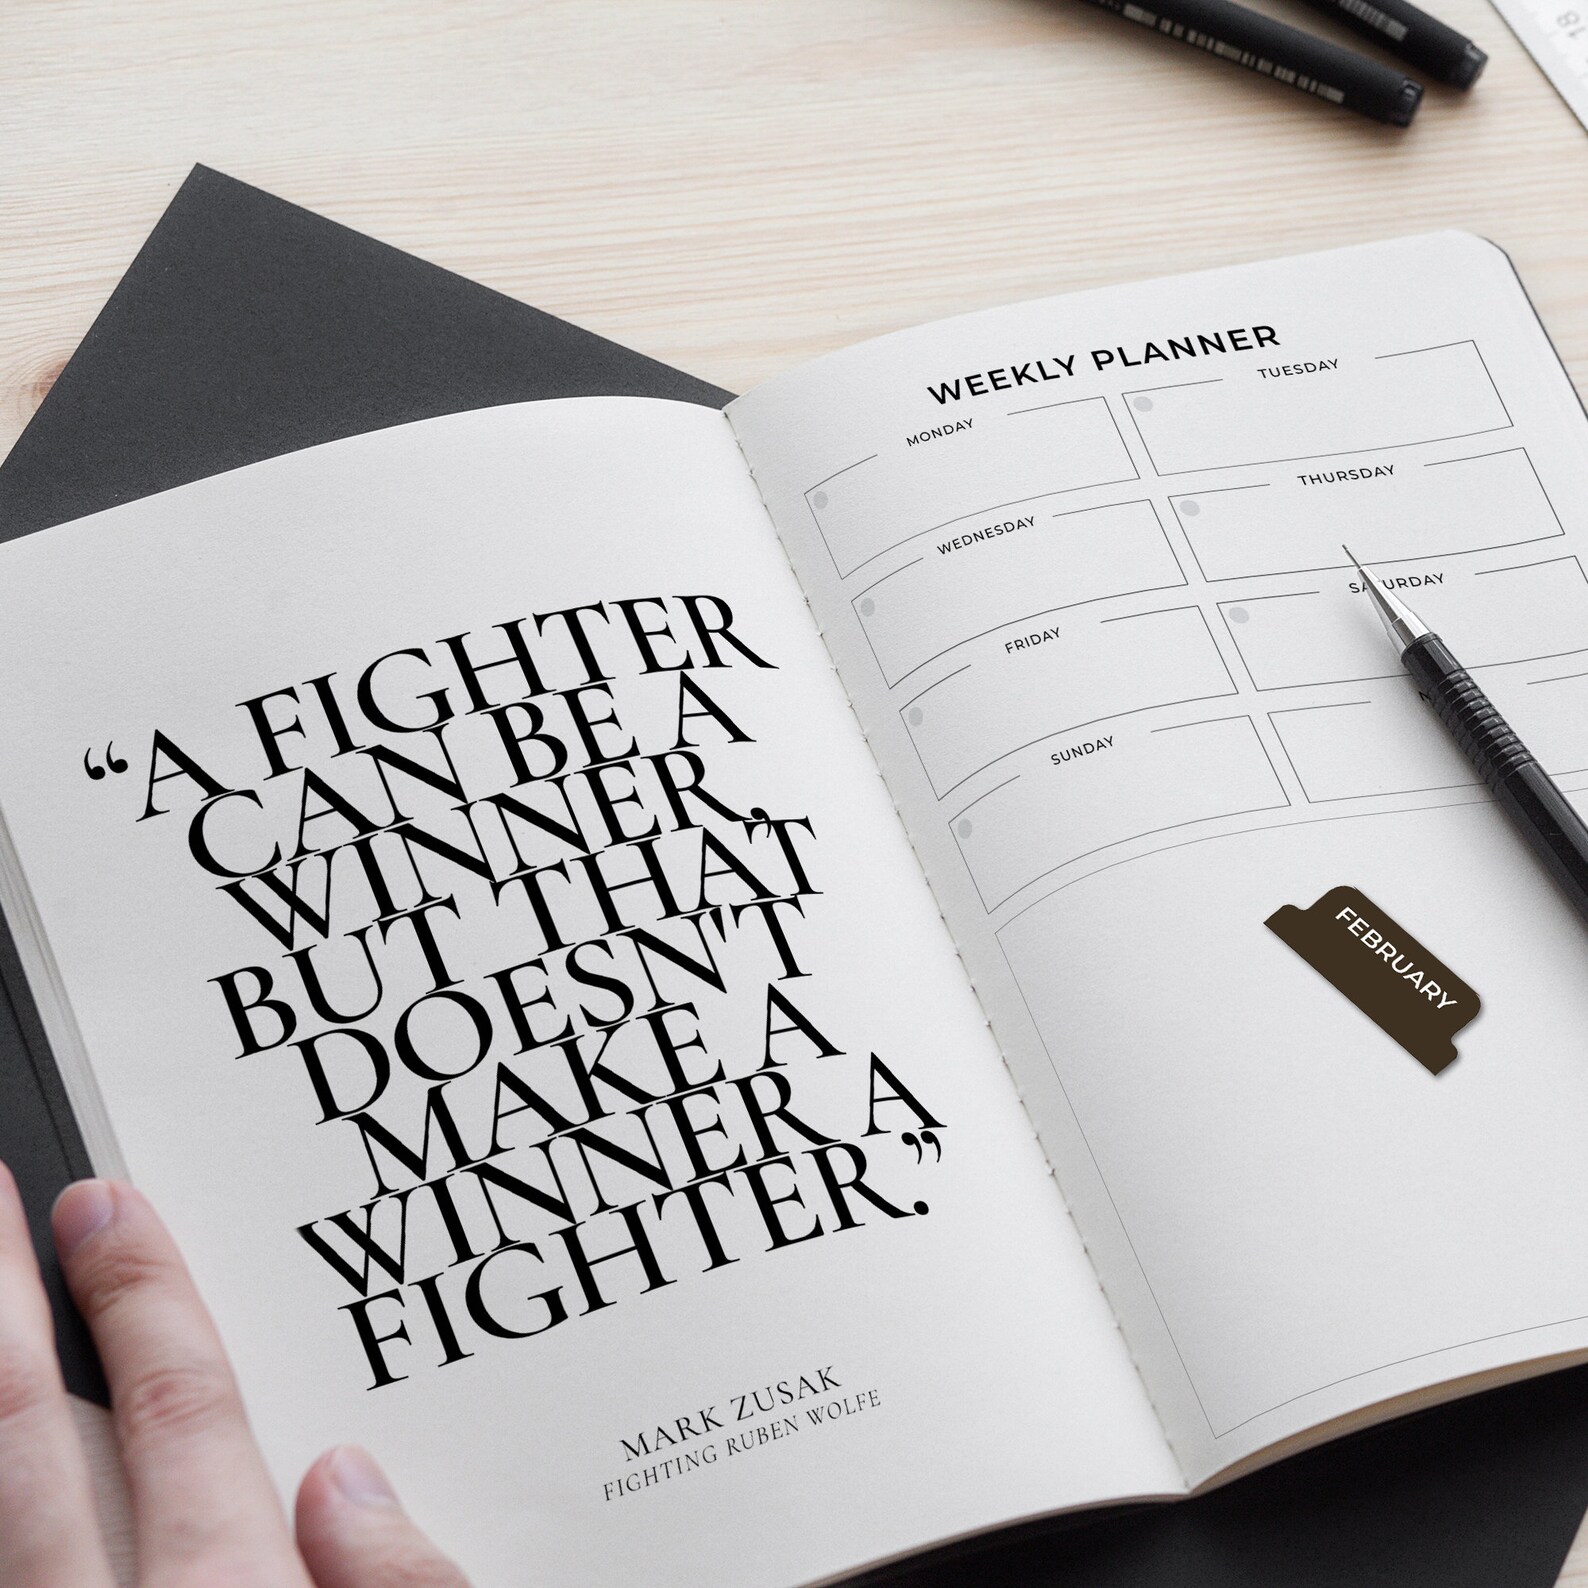 “A FIGHTER
CAN BE A
WINNER,
BUT THAT
DOESN'T
MAKE A
WINNER A
FIGHTER.”
MARK ZUSAK
FIGHTING RUBEN WOLFE
WEEKLY PLANNER
MONDAY
TUESDAY
WEDNESDAY
THURSDAY
FRIDAY
SATURDAY
SUNDAY
FEBRUARY
18